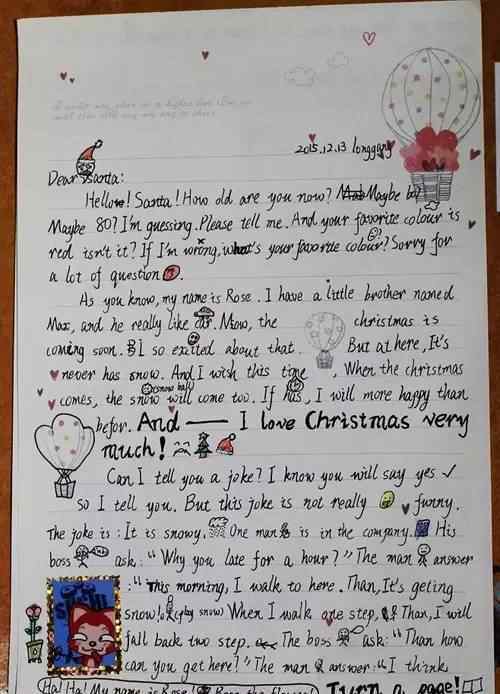 2015.12.13 longgang
Dear Santa:
Hello! Santa! How old are you now? Maybe 60?
Maybe 80? I'm guessing. Please tell me. And your favorite colour is
red isn't it? If I'm wrong, what's your favorite colour? Sorry for
a lot of question
As you know, my name is Rose. I have a little brother named
Max, and he really like car. Now, the christmas is
coming soon. I so excited about that. But at here, It's
never has snow. And I wish this time, When the christmas
(snow ball)
comes, the snow will come too. If has, I will more happy than
befor. And — I love Christmas very
much!
Can I tell you a joke? I know you will say yes ✓
so I tell you. But this joke is not really funny.
The joke is: It is snowy. One man is in the company. His
boss ask: "Why you late for a hour?" The man answer
: "This morning, I walk to here. Than, It's geting
snow! (play snow) When I walk one step, Than, I will
fall back two step. The boss ask: "Than how
can you get here?" The man answer: "I think
Ha! Ha! My name is Rose! Turn a page!